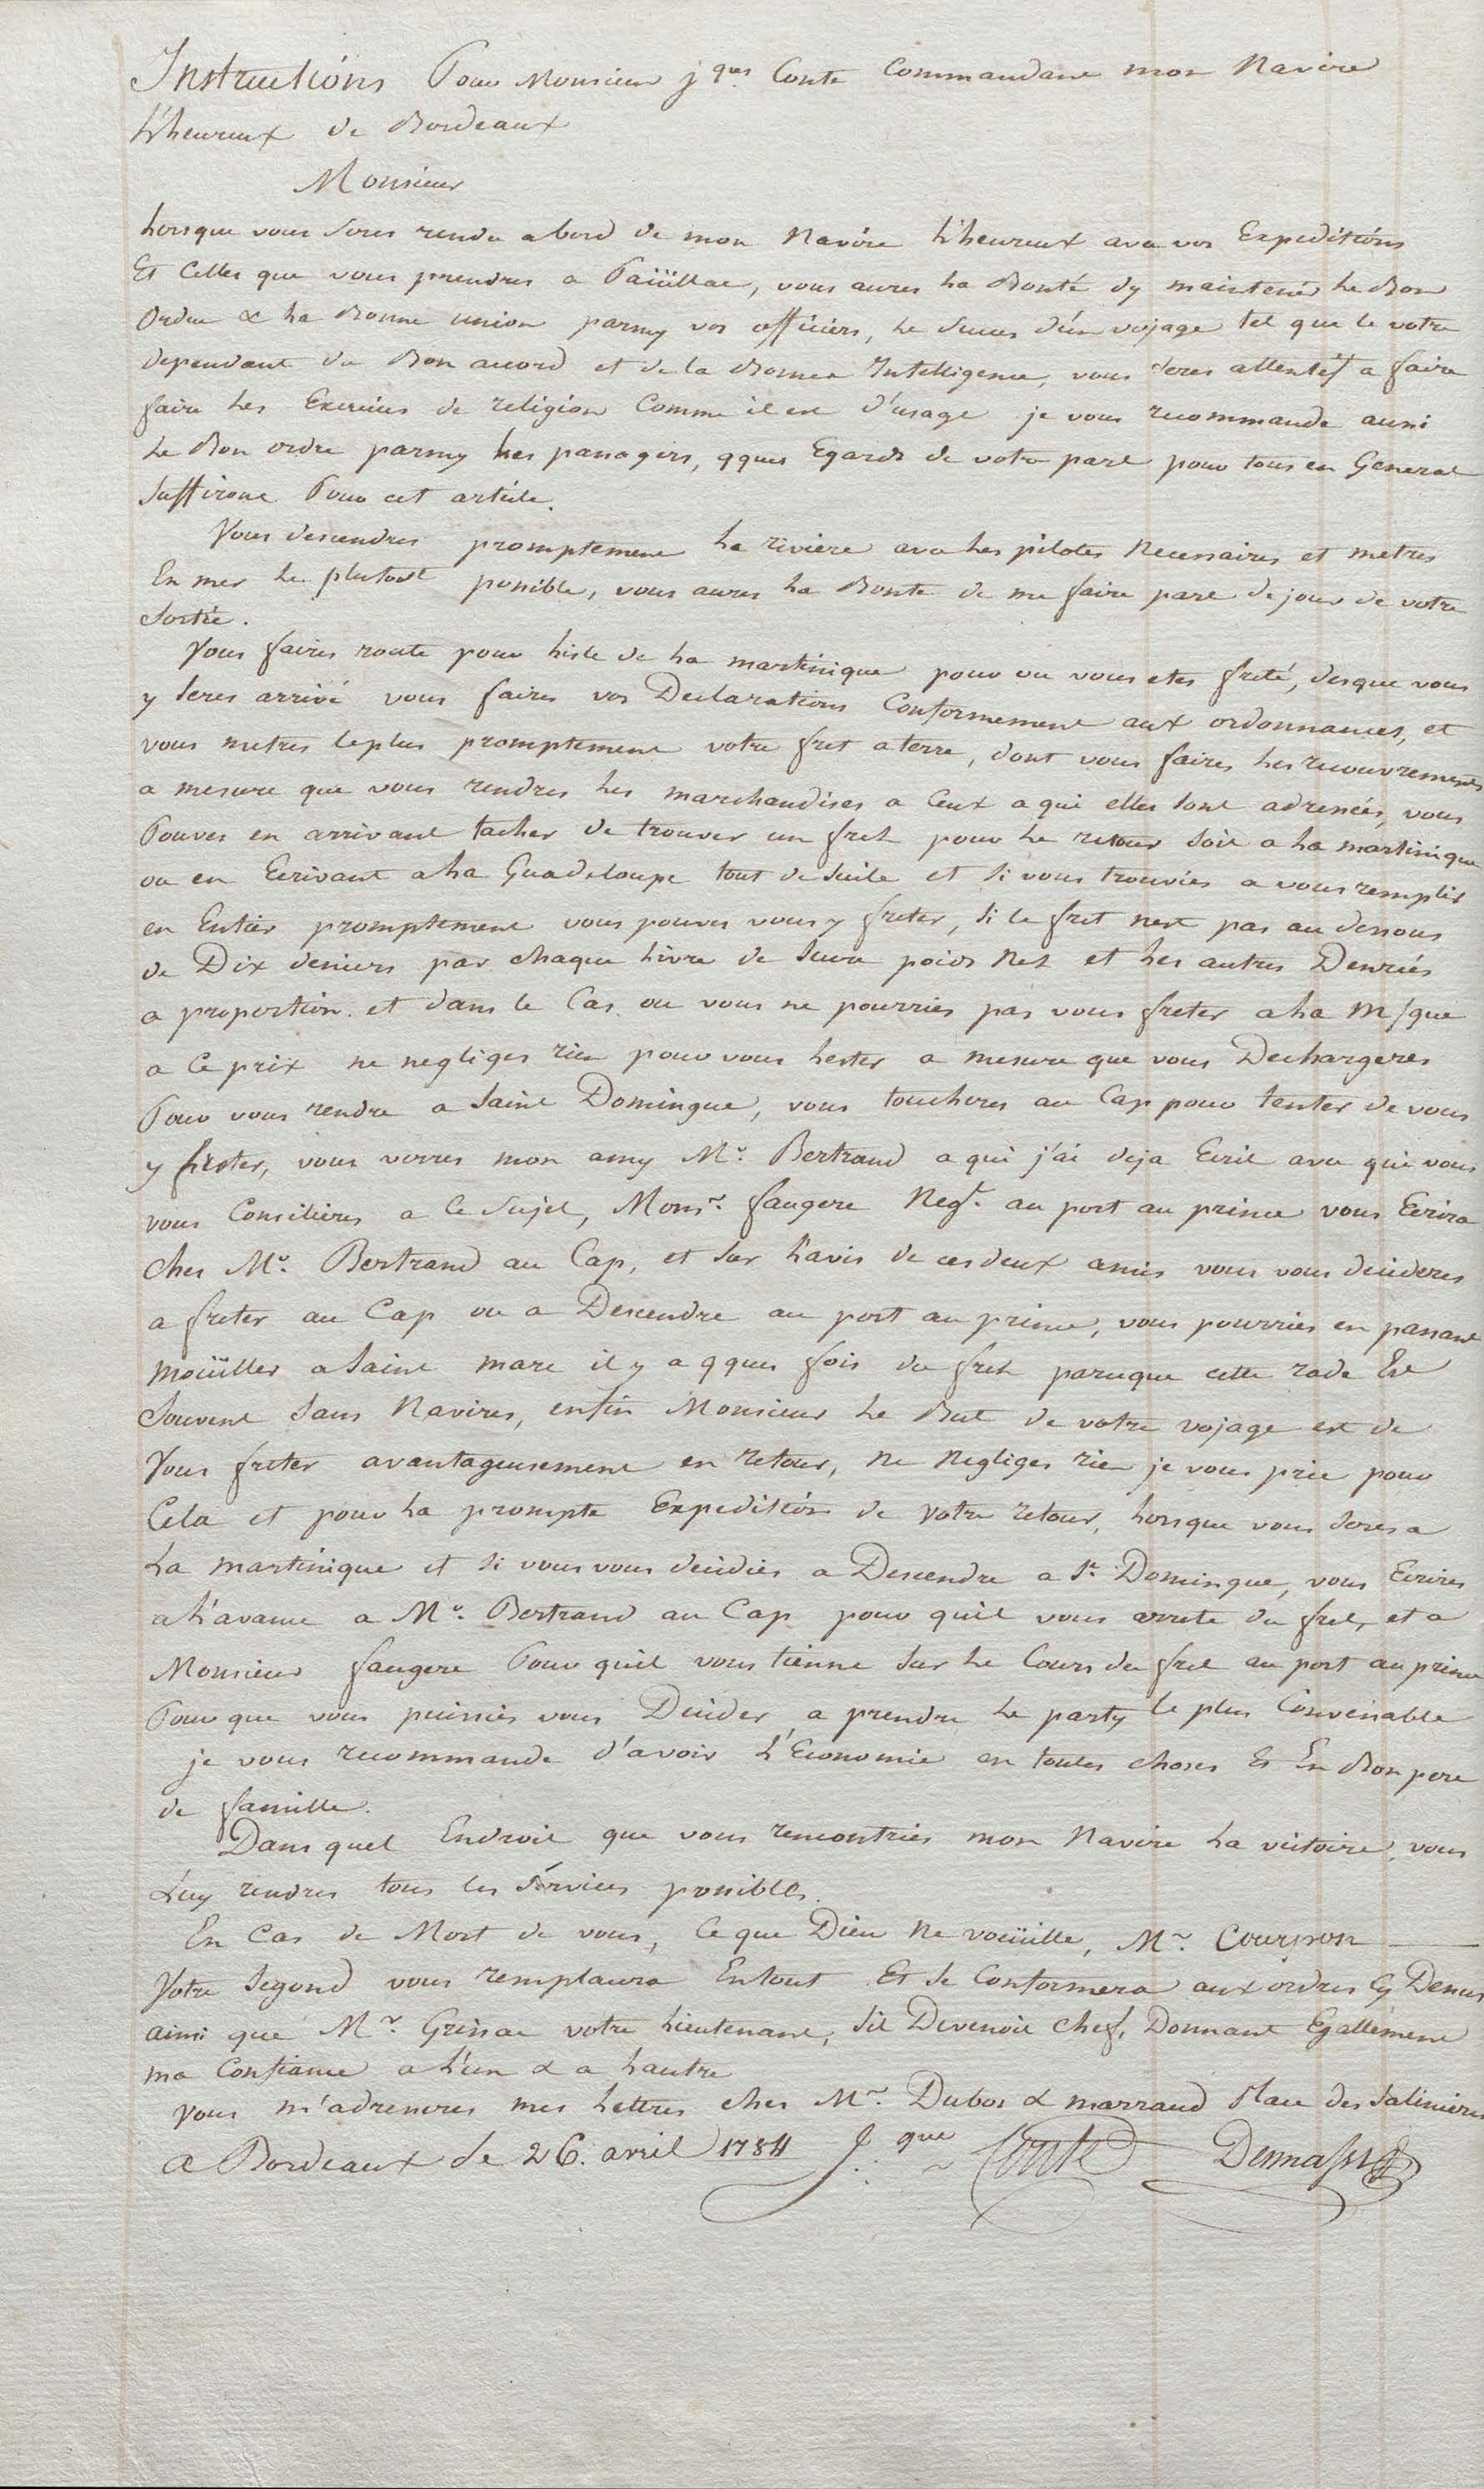 Instructions Pour Monsieur jques Conte Commandant mon Navire
L'heureux de Bordeaux
Monsieur
Lorsque vous seres rendu abord de mon Navire L'heureux avec vos Expeditions
Et Celles que vous prendres a Paüillac, vous aures La Bonté dy maintenir Le Bon
Ordre & La Bonne union parmy vos officiers, Le succes d'un voyage tel que le votre
dependant du Bon accord et de la Bonne Intelligence, vous seres attentif a faire
faire Les Exercices de religion Comme il est d'usage je vous recommande aussi
Le Bon ordre parmy Les passagers, qques Egards de votre part pour tous en General
suffiront Pour cet article.
Vous descendres promptement La riviere avec Les pilotes Necessaires et metres
En mer Le plutost possible, vous aures La Bonté de me faire part du jour de votre
sortie.
Vous faires route pour Lisle de La martinique pour ou vous etes freté, des que vous
y seres arrivé vous faires vos Declarations Conformement aux ordonnances, et
vous metres leplus promptement votre fret a terre, dont vous faires Les recouvrements
a mesure que vous rendres Les marchandises a Ceux a qui elles sont adressées, vous
Pouves en arrivant tacher de trouver un fret pour Le retour soit a La martinique
ou en Ecrivant a La Guadeloupe tout de suite et si vous trouviés a vous remplir
en Entier promptement vous pouves vous y freter, si le fret nest pas au dessous
de Dix deniers par chaque Livre de sucre poids Net et Les autres Denrées
a proportion. et dans le Cas ou vous ne pourriés pas vous freter a La M/que
a Ce prix ne negliges rien pour vous Lester a mesure que vous Dechargeres
Pour vous rendre a Saint Domingue, vous toucheres au Cap pour tenter de vous
y freter, vous verres mon amy Mr. Bertrand a qui j'ai deja Ecrit avec qui vous
vous Consilieres a Ce sujet, Monsr. faugere Negt. au port au prince vous Ecrira
Ches Mr. Bertrand au Cap, et sur L'avis de ces deux amis vous vous decideres
a freter au Cap ou a Descendre au port au prince, vous pourries en passant
moüiller a Saint marc il y a qques fois du fret parceque cette rade Est
souvent sans Navires, enfin Monsieur Le But de votre voyage est de
Vous freter avantageusement en retour, ne Negliges rien je vous prie pour
Cela et pour La prompte Expedition de votre retour, Lorsque vous seres a
La martinique et si vous vous decidies a Descendre a St. Domingue, vous Ecrires
a L'avance a Mr. Bertrand au Cap pour quil vous arrete du fret, et a
Monsieur faugere Pour quil vous tienne sur Le Cours du fret au port au prince
Pour que vous puissiés vous Decider a prendre Le party le plus Convenable
je vous recommande d'avoir L'Economie en toutes choses & En Bon pere
de famille.
Dans quel Endroit que vous rencontries mon Navire La victoire, vous
Luy rendres tous les services possibles.
En Cas de Mort de vous, Ce que Dieu Ne voüille, Mr. Courpon
Votre segond vous remplacera En tout Et se Conformera aux ordres Cy Dessus
ainsi que Mr. Grissac votre Lieutenant, sil Devenoit Chef, Donnant Egallement
ma Confiance a L'un & a Lautre
Vous m'adresseres mes Lettres ches Mr. Dubos & marraud Place des salinieres
a Bordeaux Le 26. avril 1784 Jque Conte